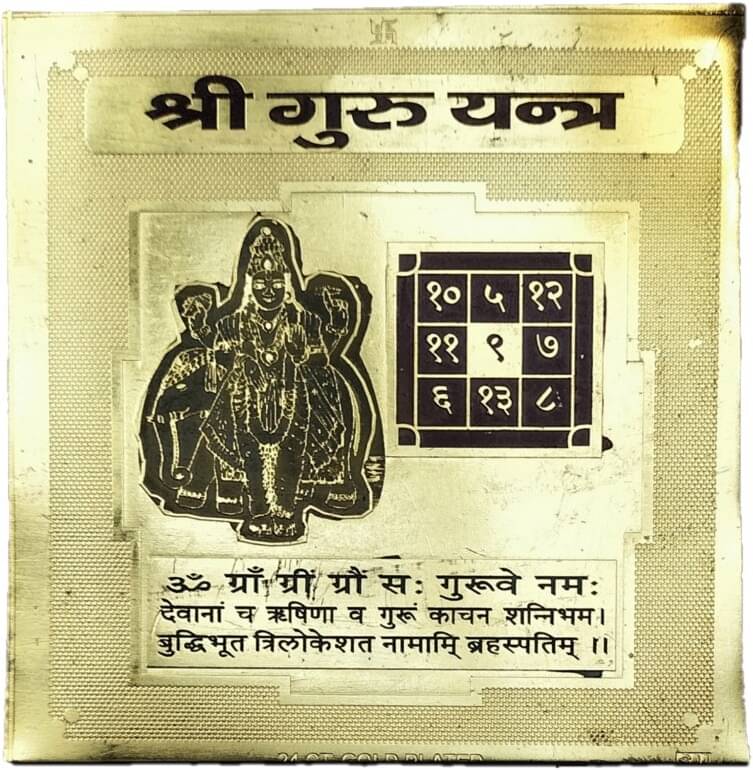 श्री गुरु यन्त्र
१० ५ १२
११ ९ ७
६ १३ ८
ॐ ग्राँ ग्रीं ग्रौं सः गुरूवे नमः
देवानां च ऋषिणा व गुरूं काचन शन्निभम।
बुद्धिभूत त्रिलोकेशत नामामि् ब्रहस्पतिम् ।।
24 CT. GOLD PLATED